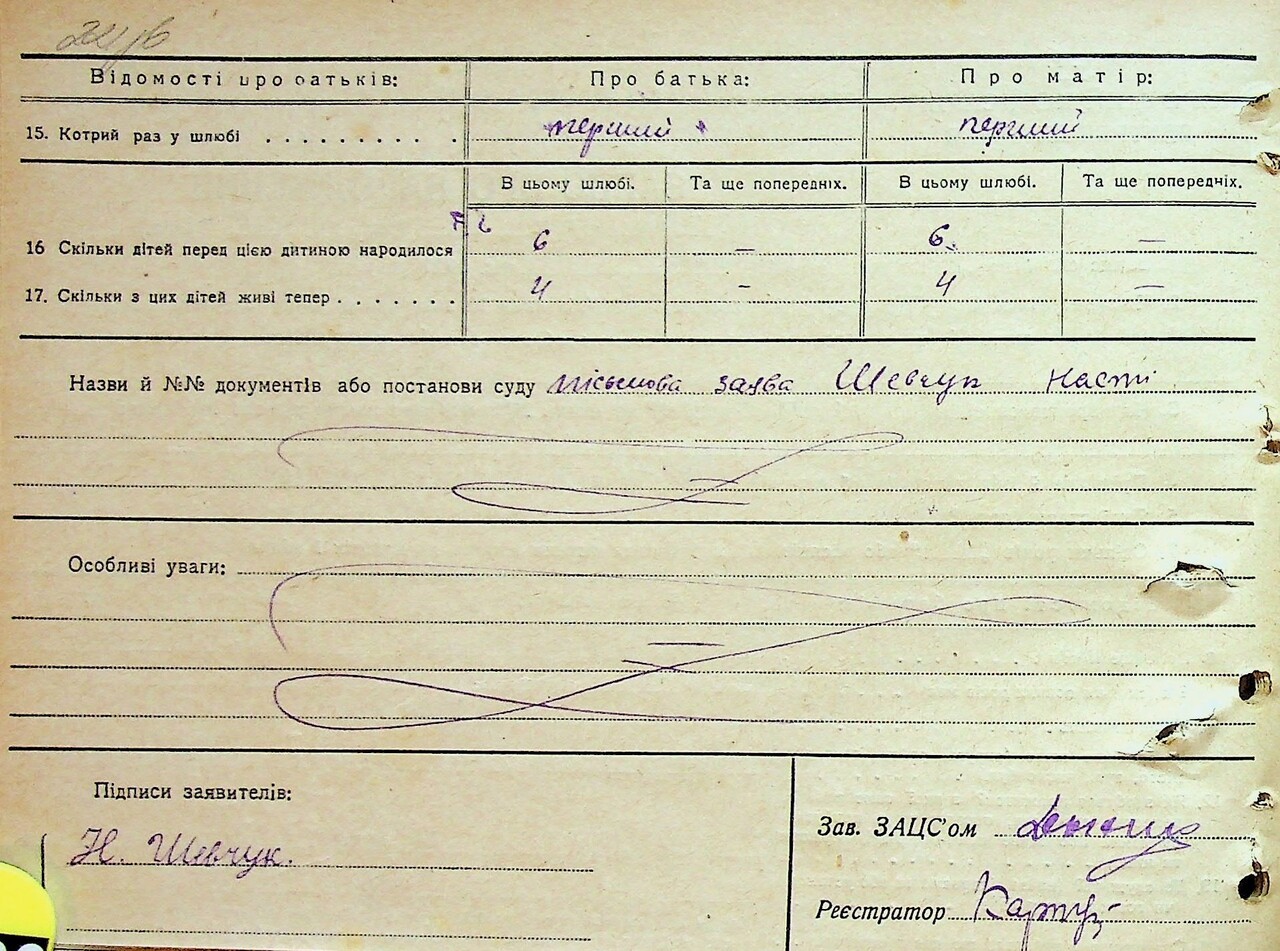 Відомості про батьків: Про батька: Про матір:
15. Котрий раз у шлюбі . . . . . . . . . . перший перший
В цьому шлюбі. Та ще попередніх. В цьому шлюбі. Та ще попередніх.
16 Скільки дітей перед цією дитиною народилося 6 — 6 —
17. Скільки з цих дітей живі тепер . . . . . . . 4 - 4 —
Назви й №№ документів або постанови суду письмова заява Шевчук Насті
Особливі уваги:
Підписи заявителів:
Н. Шевчук.
Зав. ЗАЦС'ом
Реєстратор